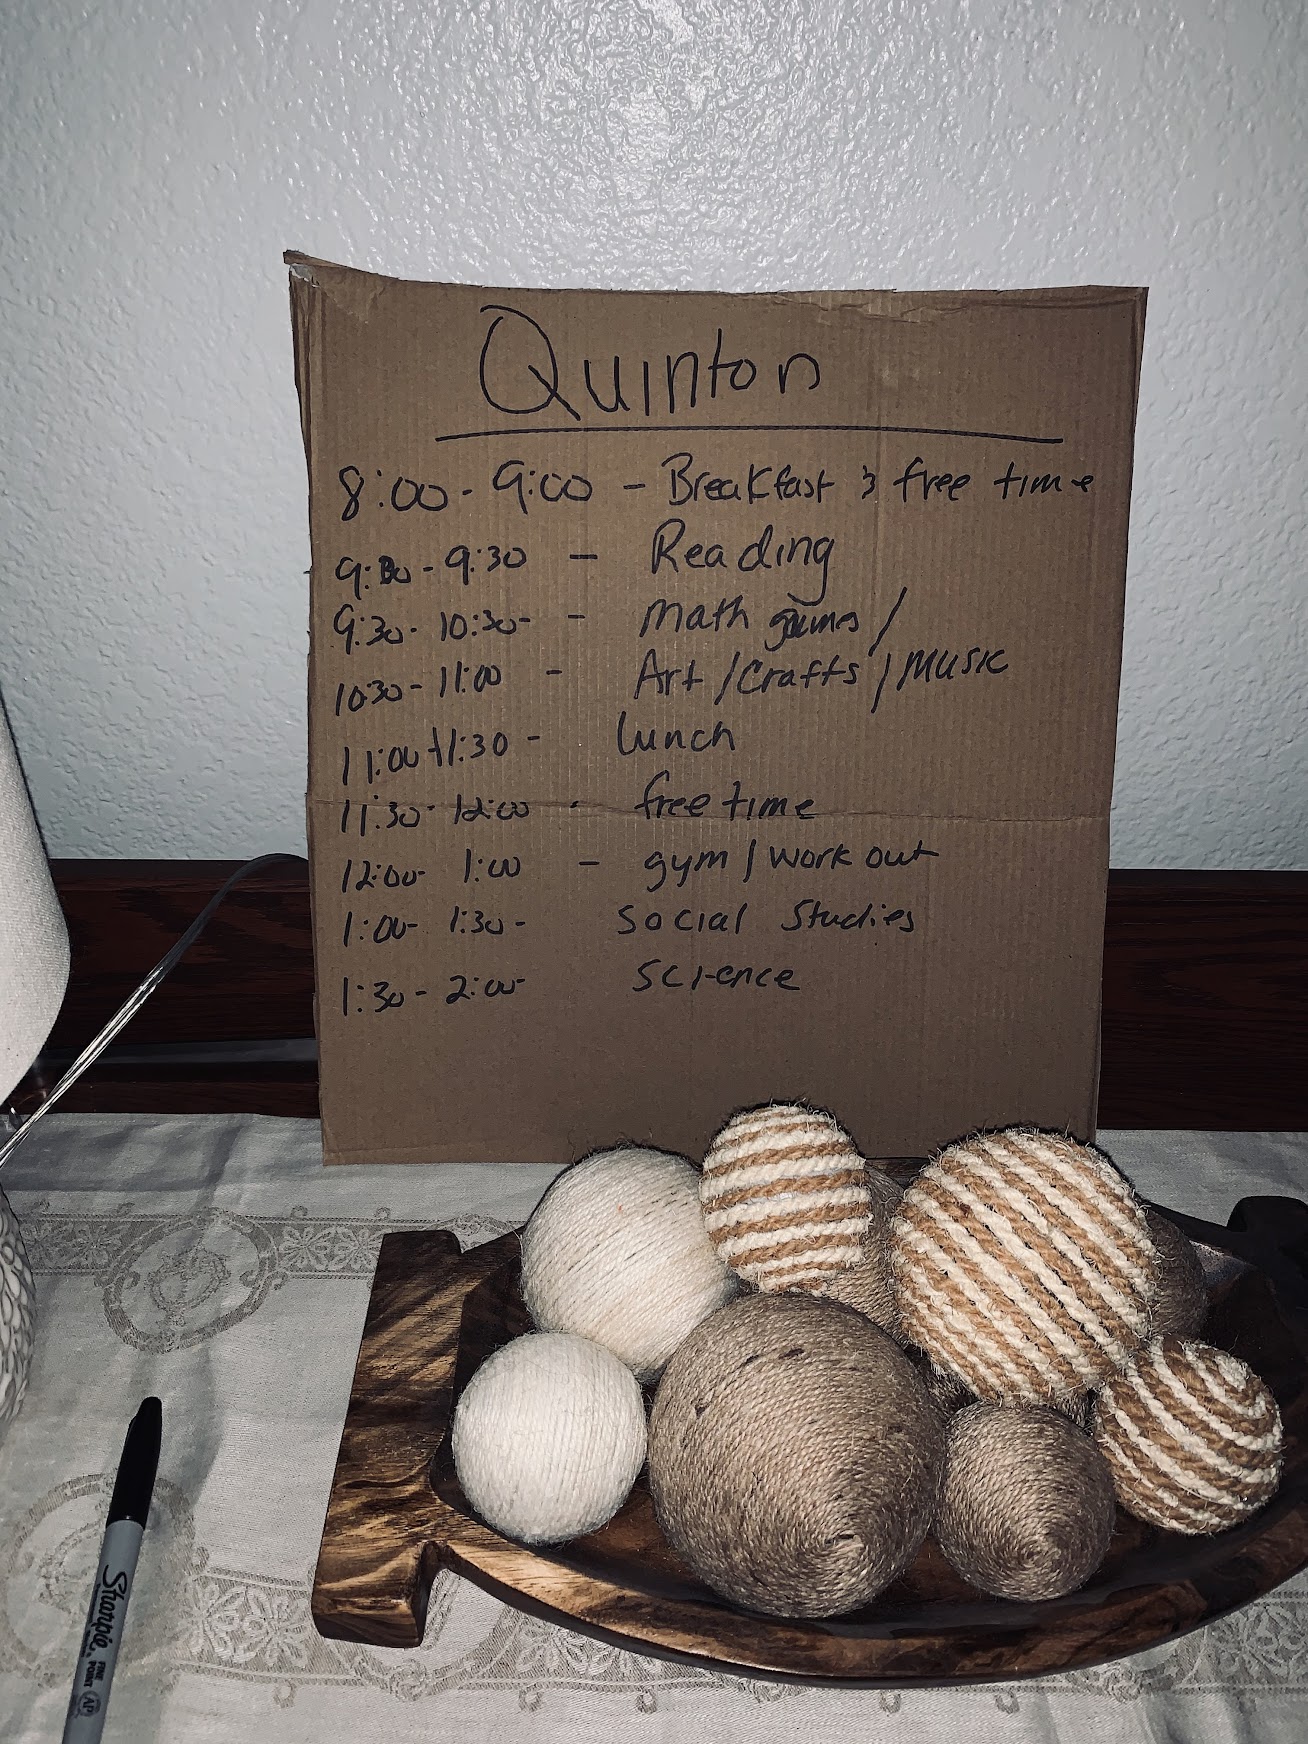 Quinton
8:00 - 9:00 - Breakfast & free time
9:00 - 9:30 - Reading
9:30 - 10:30 - - Math games /
10:30 - 11:00 - Art / Crafts / Music
11:00 - 11:30 - Lunch
11:30 - 12:00 - free time
12:00 - 1:00 - gym / work out
1:00 - 1:30 - Social Studies
1:30 - 2:00 - Science
Sharpie
FINE POINT
AP